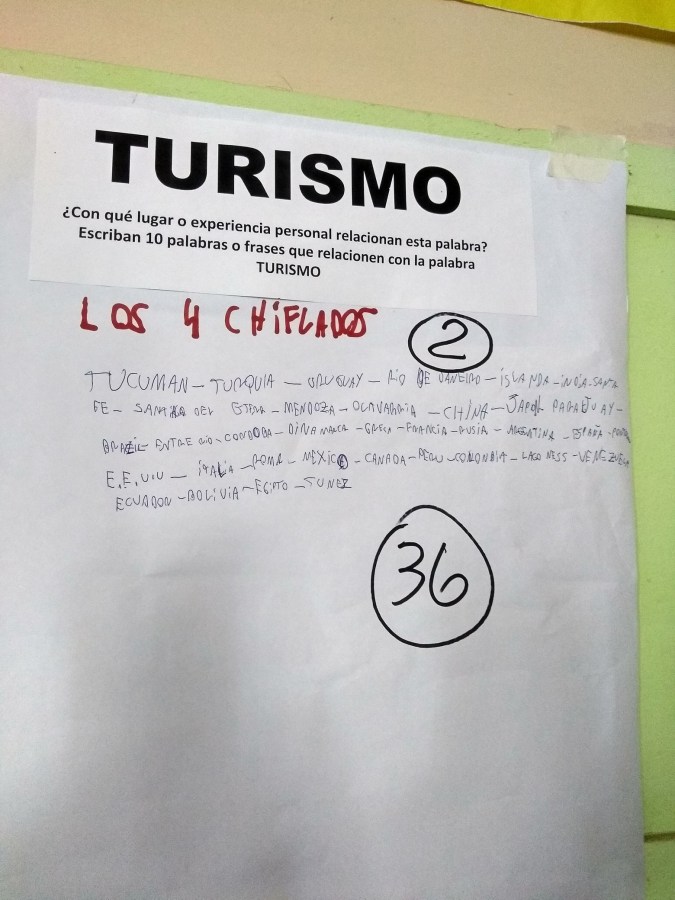 TURISMO
¿Con qué lugar o experiencia personal relacionan esta palabra?
Escriban 10 palabras o frases que relacionen con la palabra
TURISMO
LOS 4 CHIFLADOS 2
TUCUMAN - TURQUIA - URUGUAY - RIO DE JANEIRO - ISLANDA - INDIA - SANTA
FE - SANTIAGO DEL ESTERO - MENDOZA - OLAVARRIA - CHINA - JAPON PARAGUAY -
BRAZIL - ENTRE RIO - CORDOBA - DINAMARCA - GRECA - FRANCIA - RUSIA - ARGENTINA - ESPAÑA -
E.E.U.U - ITALIA - ROMA - MEXICO - CANADA - PERU - COLOMBIA - LAGO NESS - VENEZUELA
ECUADOR - BOLIVIA - EGIPTO - TUNEZ
36